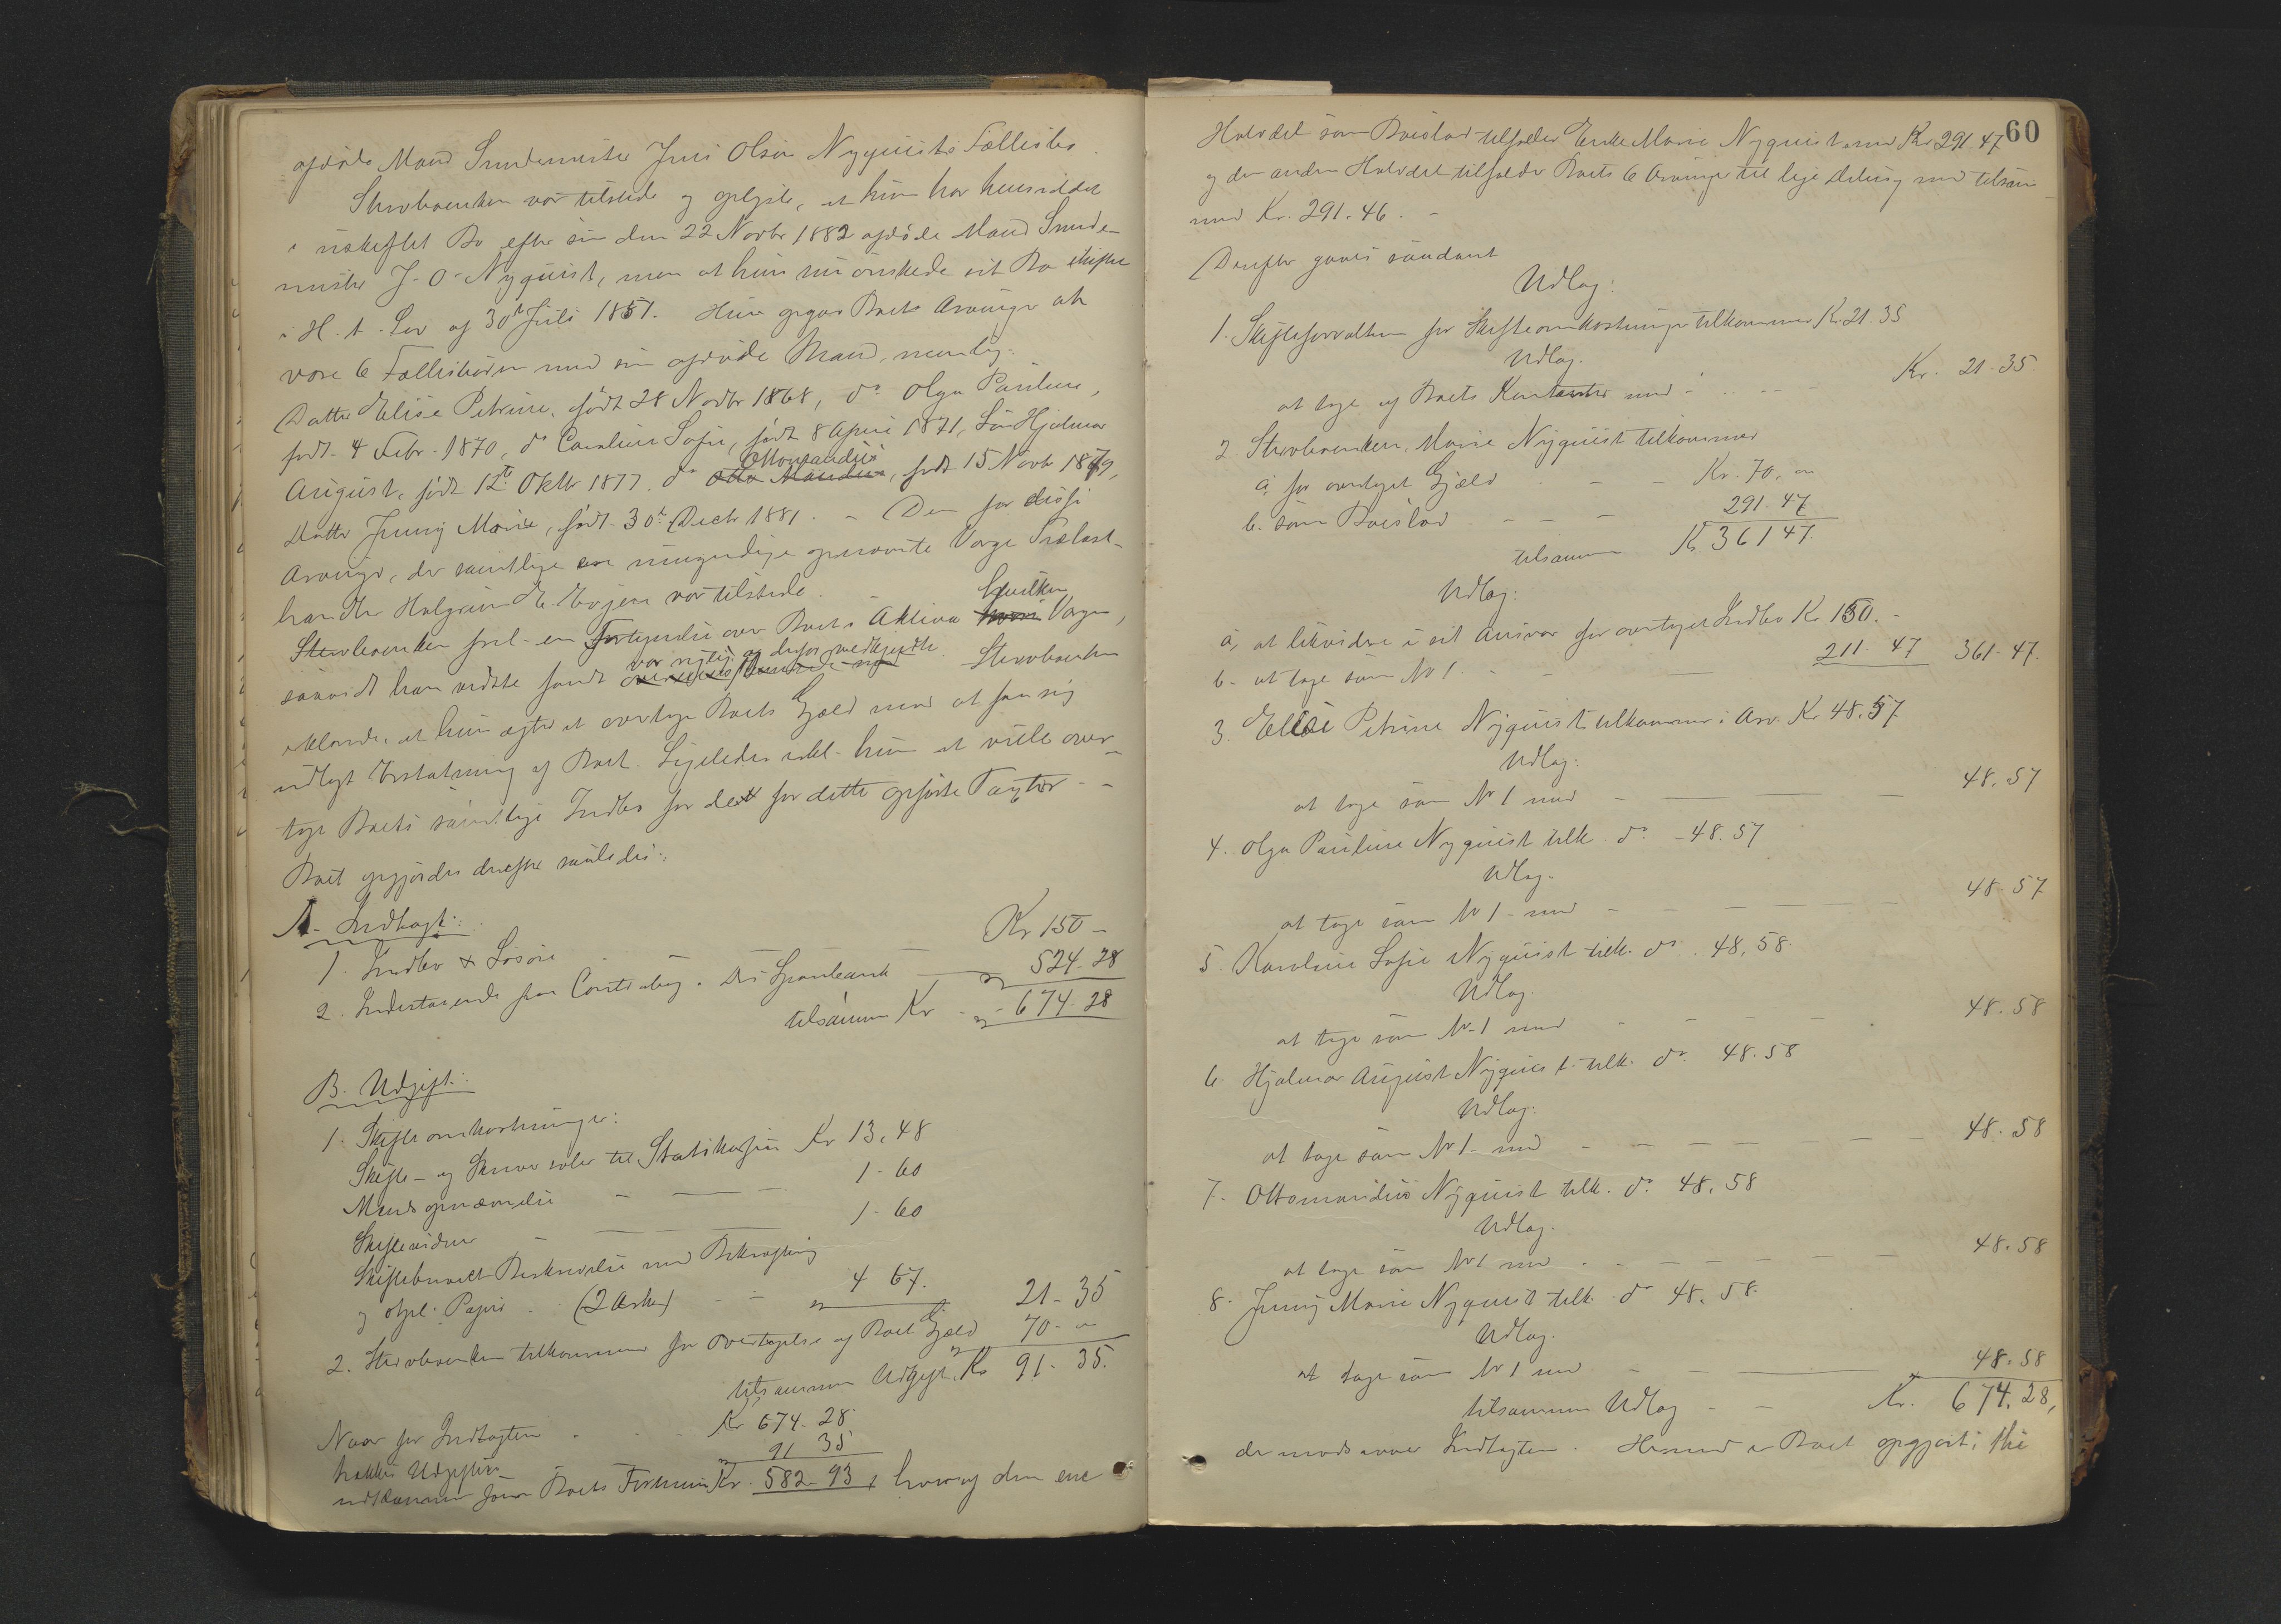 afdøde Mand Smedemester Jens Olsen Nyquists Fællesbo.
Stervboenken var tilstede og oplyste, at hun har hensiddet
i uskiftet Bo efter sin den 22 Novbr 1882 afdøde Mand Smede-
mester J. O. Nyquist, men at hun nu ønskede sit Bo skiftet
i H. t. Lov af 30te Juli 1851. Hun opgav Boets Arvinger at
være 6 Fællesbørn med sin afdøde Mand, nemlig:
Datter Elise Petrine, født 28 Novbr 1868, do Olga Pauline,
født 4 Febr. 1870, do Caroline Sofie, født 8 April 1871, Søn Hjalmar
August, født 12te Oktbr 1877, do Otto Mandius Ottomandius, født 15 Novbr 1879,
Datter Jenny Marie, født 30te Decbr 1881. – Den for disse
Arvinger, der samtlige ere umyndige opnævnte Værge Trælast-
handler Halgrim E. Evjen var tilstede.
Stervboenken frel. en Fortegnelse over Boets Aktiva hvori hvilken Værgen,
saavidt han vidste fandt overensstemmende var rigtig og derfor vedkjendte. Stervboenken
erklærede, at hun agter at overtage Boets Gjæld mod at faa sig
udlagt Erstatning af Boet. Ligeledes erkl. hun at ville over-
tage Boets samtlige Indbo for det for dette opførte Taxter. –
Boet opgjørdes derefter saaledes:
A. Indtægt:
1. Indbo & Løsøre – – – Kr 150 –
2. Indestaaende paa Contrabog i D.s Sparebank – 524. 28
tilsammen Kr – 674. 28
B. Udgift:
1. Skifteomkostninger:
Skifte- og Skriversalær til Statskassen Kr 13. 48
Mends opnævnelse – – – 1. 60
Skiftevidner – – – 1. 60
Skiftebrevets Beskrivelse med Bekræftning
og stpl. Papir. (2 Ark) – – 4 67. 21. 35
2. Stervboenken tilkommer for Overtagelse af Boets Gjæld 70. "
tilsammen Udgift Kr 91. 35.
Naar fra Indtægten . . . Kr 674. 28
trækkes Udgiften – 91 35
udkommer som Boets Formue Kr. 582. 93, hvoraf den ene
60
Halvdel som Boeslod tilfalder Enke Marie Nyquist med Kr 291. 47
og den anden Halvdel tilfalder Boets 6 Arvinger til lige Deling med tilsam-
men Kr. 291. 46. –
Derefter gjøres saadant
Udlæg:
1. Skifteforvalteren for Skifteomkostninger tilkommer Kr. 21. 35
Udlæg.
at tage af Boets Kontanter med – . . – Kr. 21. 35.
2. Stervboenken, Marie Nyquist tilkommer
a, for overtaget Gjæld – – Kr. 70, "
b. som Boeslod – – – 291. 47
tilsammen Kr 361 47.
Udlæg:
a, at likvidere i sit Ansvar for overtaget Indbo Kr 150. –
b. at tage som No 1. – – 211. 47 361. 47.
3. Elise Petrine Nyquist tilkommer i Arv Kr 48. 57.
Udlæg:
at tage som No 1 med – – – 48. 57
4. Olga Pauline Nyquist tilk. do – 48. 57
Udlæg.
at tage som No 1 – med – – – – – 48. 57
5. Karoline Sofie Nyquist tilk. do. 48. 58.
Udlæg.
at tage som No 1 med – – – – 48. 58
6. Hjalmar August Nyquist tilk. do. 48. 58
Udlæg:
at tage som No 1 – med – – – – – – – 48. 58
7. Ottomandius Nyquist tilk. do. 48. 58
Udlæg.
at tage som No 1 med – – – – – 48. 58
8. Jenny Marie Nyquist tilk. do 48. 58.
Udlæg.
at tage som No 1 med – – – 48. 58
tilsammen Udlæg – – Kr. 674. 28,
der modsvarer Indtægten. Hermed er Boet opgjort; thi